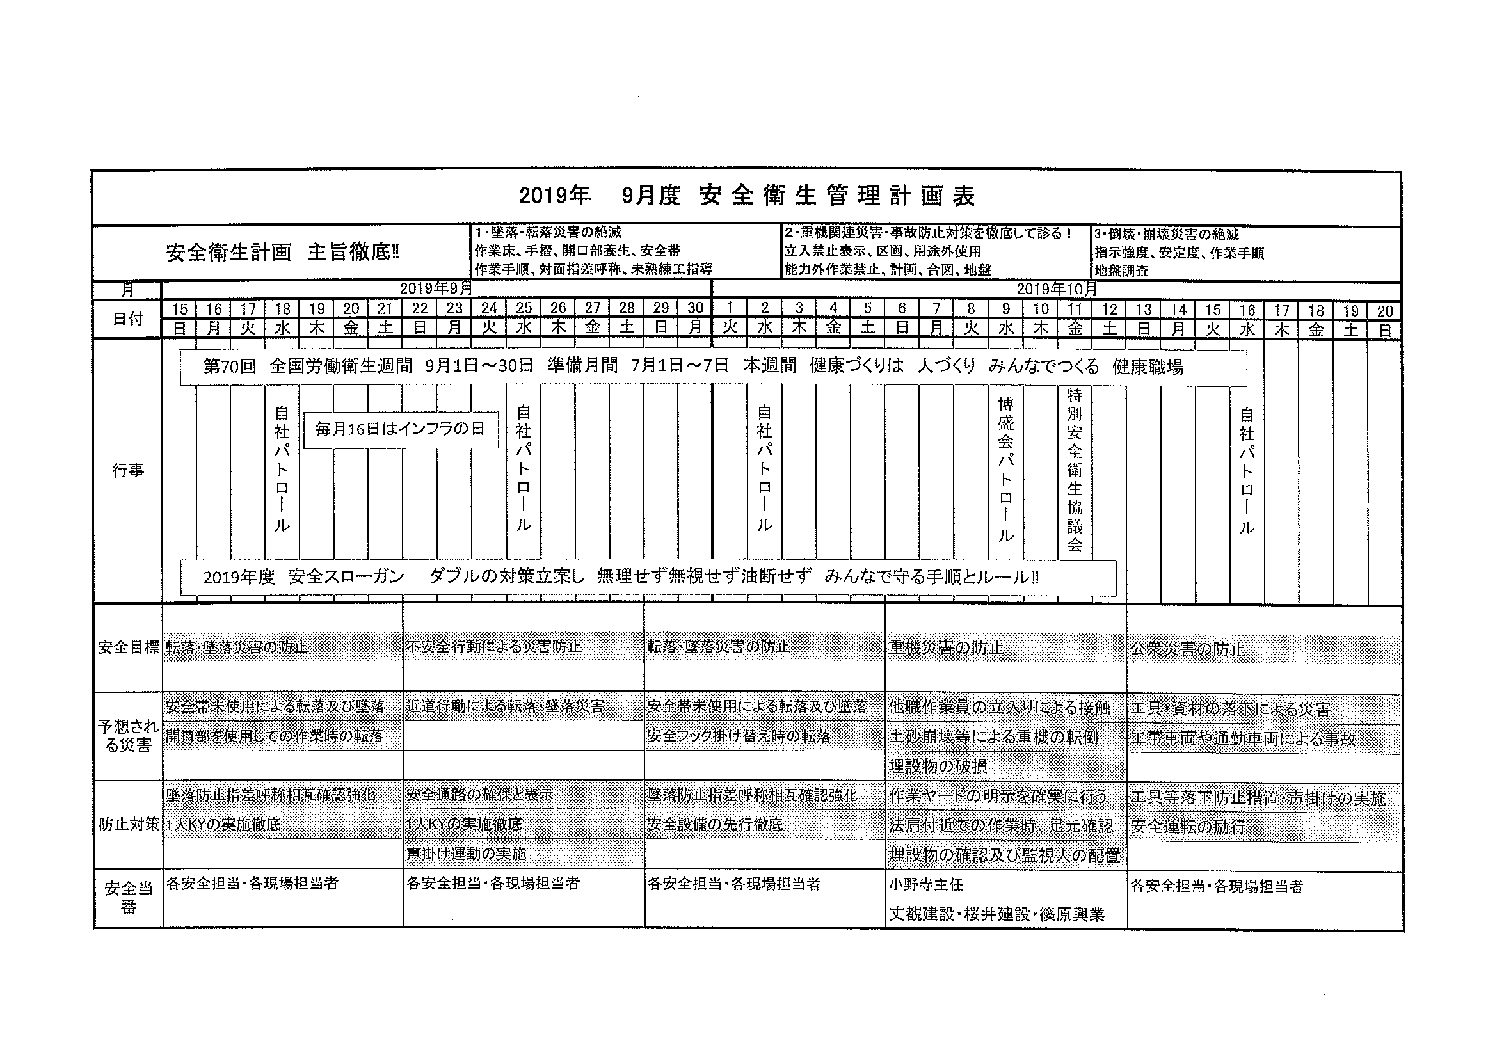 2019年　9月度 安全衛生管理計画表
安全衛生計画　主旨徹底!!
1・墜落・転落災害の絶滅
作業床、手摺、開口部養生、安全帯
作業手順、対面指差呼称、未熟練工指導
2・重機関連災害・事故防止対策を徹底して診る！
立入禁止表示、区画、用途外使用
能力外作業禁止、計画、合図、地盤
3・倒壊・崩壊災害の絶滅
指示強度、安定度、作業手順
地盤調査
月 2019年9月 2019年10月
日付 15 16 17 18 19 20 21 22 23 24 25 26 27 28 29 30 1 2 3 4 5 6 7 8 9 10 11 12 13 14 15 16 17 18 19 20
日 月 火 水 木 金 土 日 月 火 水 木 金 土 日 月 火 水 木 金 土 日 月 火 水 木 金 土 日 月 火 水 木 金 土 日
行事
第70回　全国労働衛生週間　9月1日～30日　準備月間　7月1日～7日　本週間　健康づくりは　人づくり　みんなでつくる　健康職場
自社パトロール
毎月16日はインフラの日
自社パトロール
自社パトロール
博盛会パトロール
特別安全衛生協議会
自社パトロール
2019年度　安全スローガン　ダブルの対策立案し　無理せず無視せず油断せず　みんなで守る手順とルール!!
安全目標 転落・墜落災害の防止 不安全行動による災害防止 転落・墜落災害の防止 重機災害の防止 公衆災害の防止
予想される災害
安全帯未使用による転落及び墜落 近道行動による転落・墜落災害 安全帯未使用による転落及び墜落 他職作業員の立入りによる接触 工具・資材の落下による災害
開口部を使用しての作業時の転落 安全フック掛け替え時の転落 土砂崩壊等による重機の転倒 工事車両や通勤車両による事故
埋設物の破損
防止対策
墜落防止指差呼称相互確認強化 安全通路の確保と表示 墜落防止指差呼称相互確認強化 作業ヤードの明示を確実に行う 工具等落下防止措置・声掛けの実施
1人KYの実施徹底 1人KYの実施徹底 安全設備の先行徹底 法肩付近での作業時　足元確認 安全運転の励行
声掛け運動の実施 埋設物の確認及び監視人の配置
安全当番
各安全担当・各現場担当者 各安全担当・各現場担当者 各安全担当・各現場担当者 小野寺主任 各安全担当・各現場担当者
丈観建設・桜井建設・篠原興業